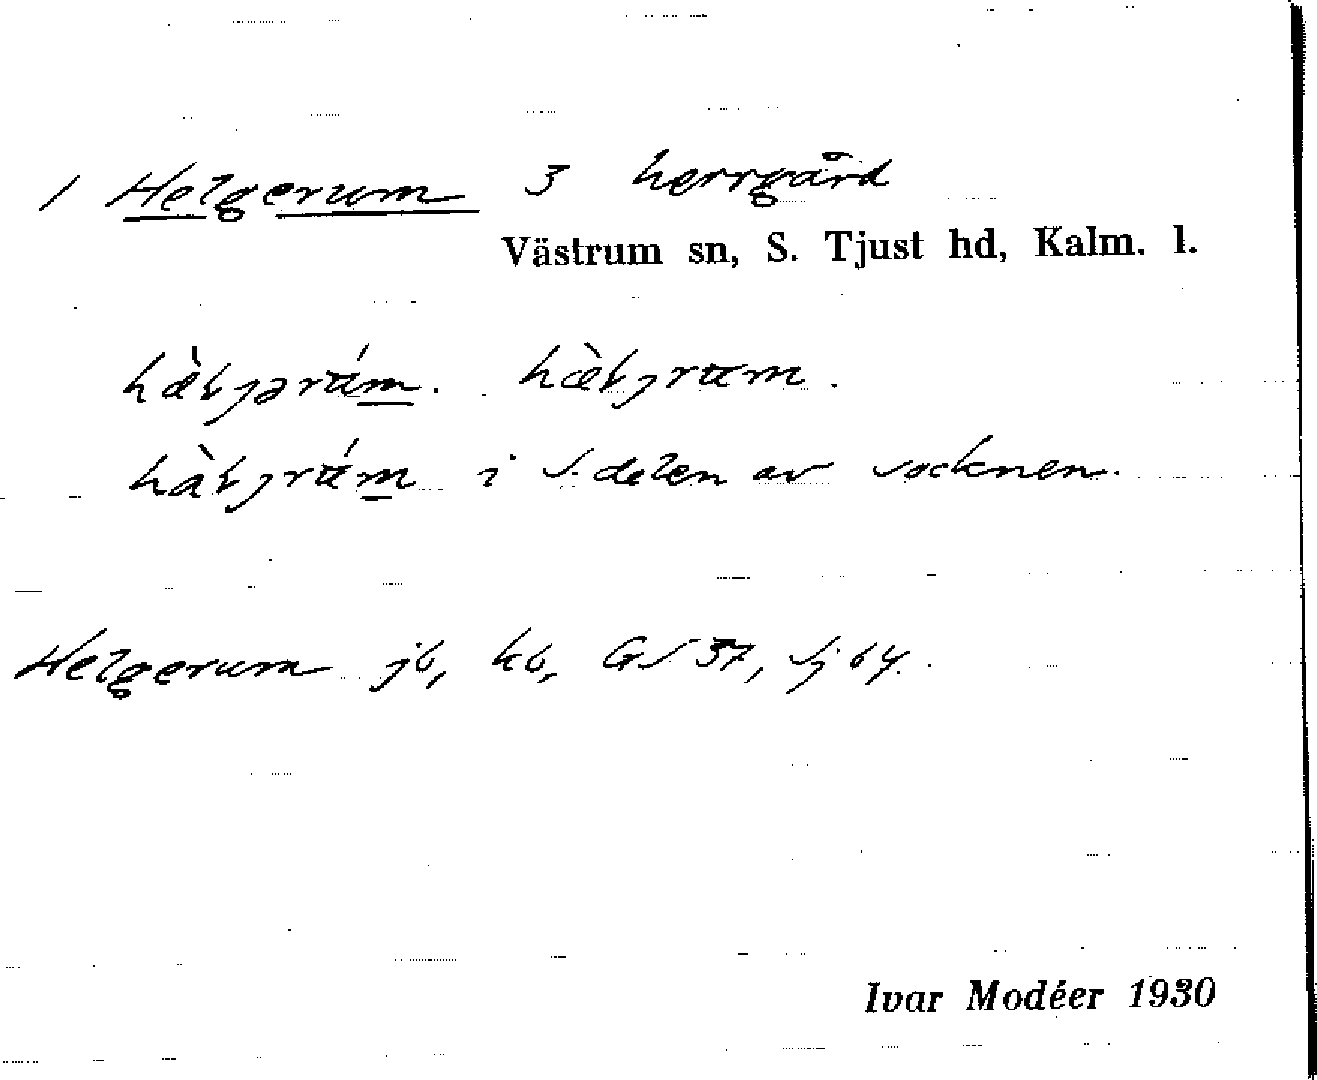 1 Helgerum 3 herrgård
Västrum sn, S. Tjust hd, Kalm. l.
i S. delen av socknen.
Helgerum jb, kb, GS 37, Sj 64.
Ivar Modéer 1930